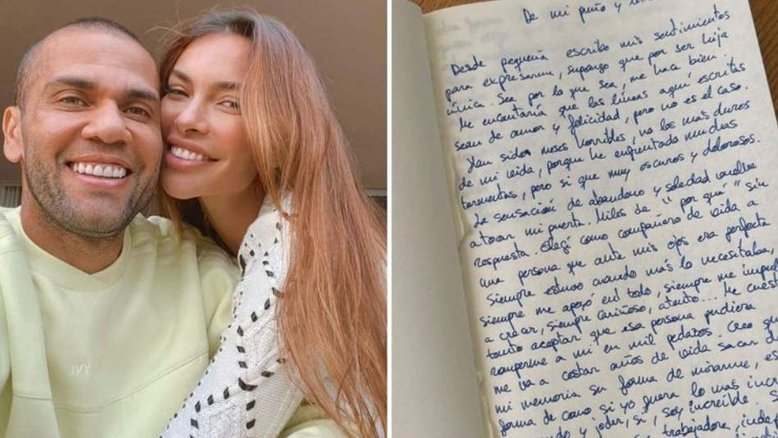 IVY
De mi puño y
Desde pequeña escribo mis sentimientos
para expresarme, supongo que por ser hija
única. Sea por lo que sea, me hace bien.
Me encantaría que las líneas aquí escritas
sean de amor y felicidad, pero no es el caso.
Han sido meses horribles, no los más duros
de mi vida, porque he enfrentado muchas
tormentas, pero si que muy oscuros y dolorosos.
La sensación de abandono y soledad vuelve
a tocar mi puerta. Miles de "por qué" sin
respuesta. Elegí como compañero de vida a
una persona que ante mis ojos era perfecta
siempre estuvo cuando más lo necesitaba,
siempre me apoyó en todo, siempre me
a crecer, siempre cariñoso, atento... Me cuesta
tanto aceptar que esa persona pudiera
romperme a mi en mil pedazos. Creo que
me va a costar años de vida sacar de
mi memoria su forma de mirarme,
forma de como si yo fuera lo más
y joder, si, soy increíble.
trabajadora,